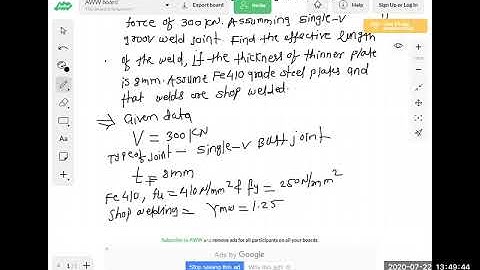 AWW board
Export board
Invite
Sign Up or Log In
force of 300 KN. Assumming single-V
groov weld joint. Find the effective length
of the weld, if the thickness of thinner plate
is 8mm. Assume Fe410 grade steel plates and
that welds are shop welded.
⇒ Given data
V = 300 KN
Type of joint - single-V Butt joint
t = 8mm
Fe410, fu = 410 N/mm² & fy = 250 N/mm²
Shop welding = γmw = 1.25
Subscribe to AWW and remove ads for all participants on all your boards.
Ads by Google
Stop seeing this ad
Why this ad?
2020-07-22 13:49:44